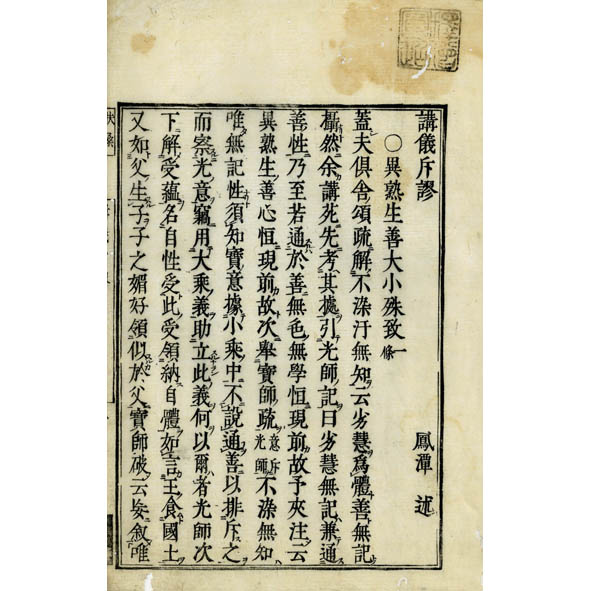 講儀斥謬 鳳潭 述
○異熟生善大小殊致一條
蓋夫俱舍頌疏解不染汙無知云劣慧爲體善無記
攝然余講苑先考其據引光師記曰劣慧無記兼通
善性乃至若通於善無色無學恒現前故予夾注云
異熟生善心恒現前故次舉寶師疏意斥光師不染無知
唯無記性須知寶意據小乘中不說通善以排斥之
而察光意竊用大乘義助立此義何以爾者光師次
下解受蘊名自性受此受領納自體如言王食國土
又如父生子子之媚好領似於父寶師破云妄敘唯